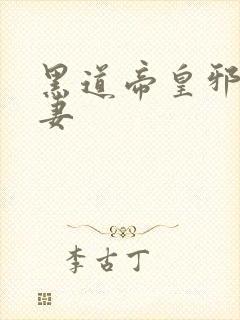 黑道帝皇邪
妻
李古丁